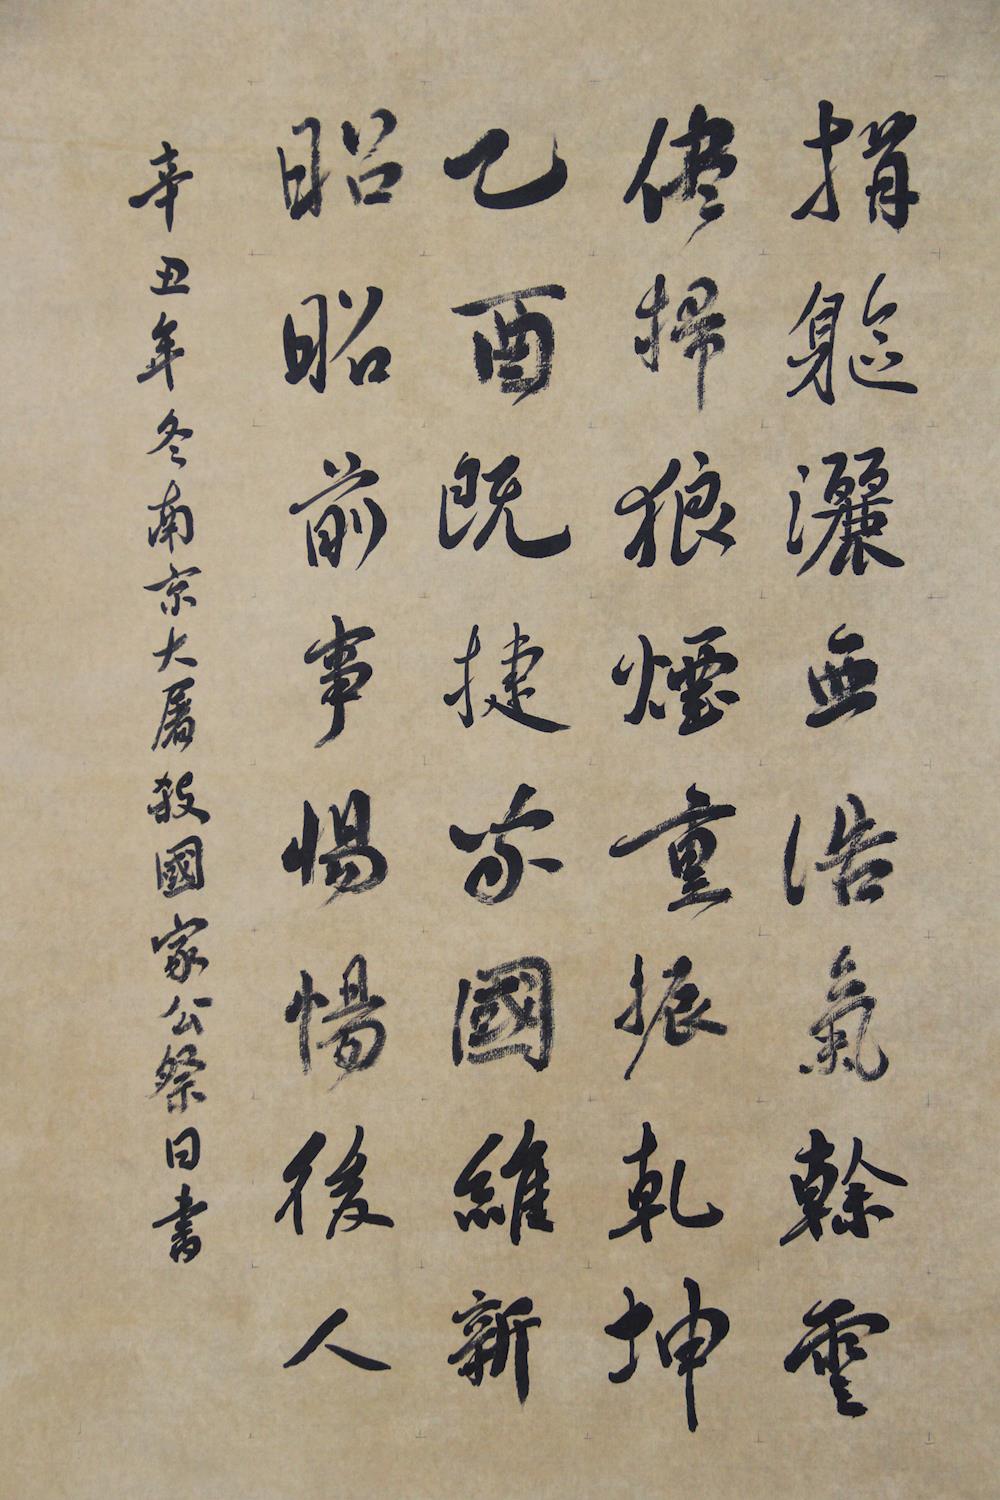 捐躯灑血浩氣幹雲
儘掃狼煙重振乾坤
乙酉既捷家國維新
昭昭前事惕惕後人
辛丑年冬南京大屠殺國家公祭日書